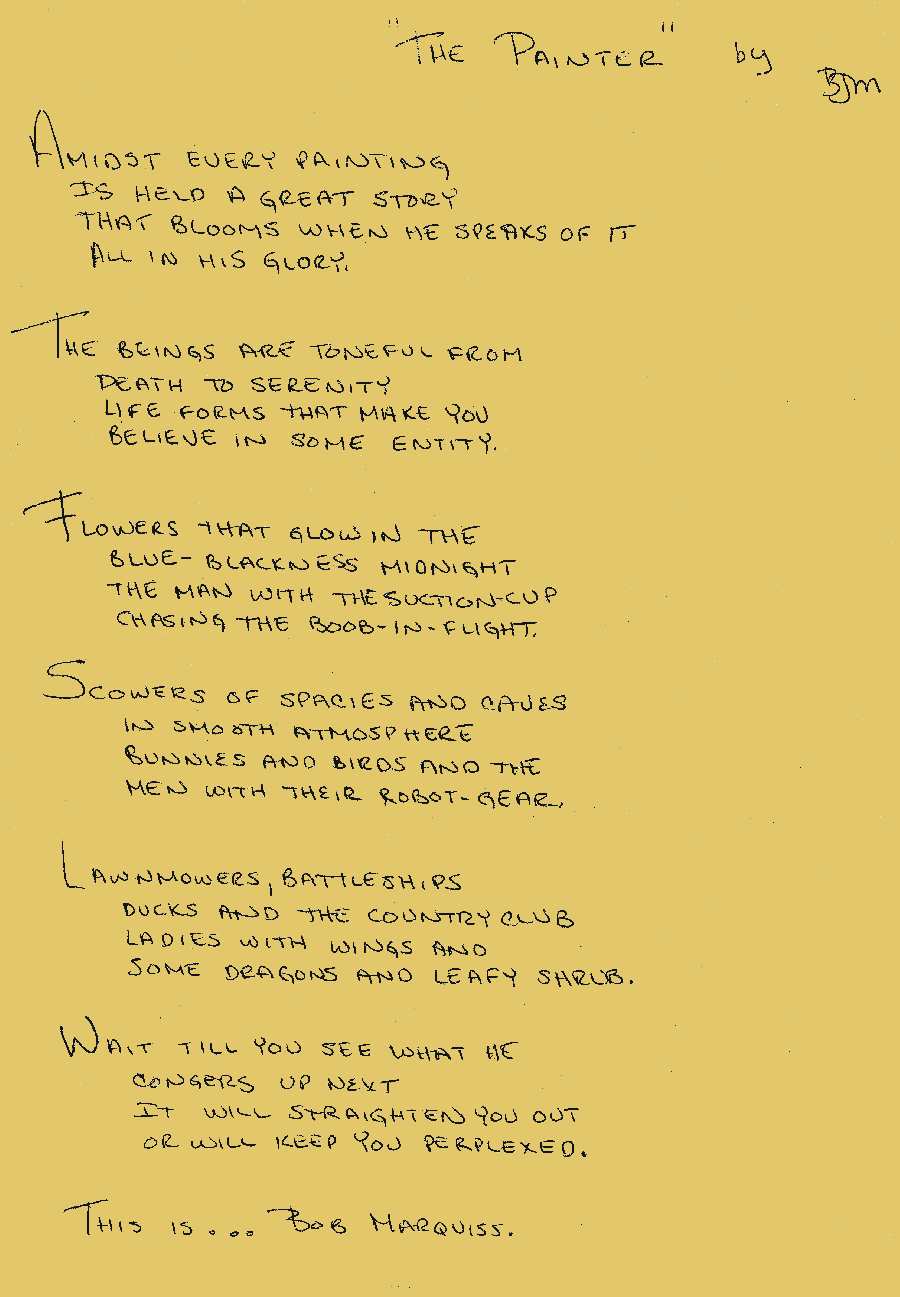 "THE PAINTER" by
BJM
AMIDST EVERY PAINTING
IS HELD A GREAT STORY
THAT BLOOMS WHEN HE SPEAKS OF IT
ALL IN HIS GLORY.
THE BEINGS ARE TONEFUL FROM
DEATH TO SERENITY
LIFE FORMS THAT MAKE YOU
BELIEVE IN SOME ENTITY.
FLOWERS THAT GLOW IN THE
BLUE-BLACKNESS MIDNIGHT
THE MAN WITH THE SUCTION-CUP
CHASING THE BOOB-IN-FLIGHT.
SCOWERS OF SPACIES AND CAVES
IN SMOOTH ATMOSPHERE
BUNNIES AND BIRDS AND THE
MEN WITH THEIR ROBOT-GEAR.
LAWNMOWERS, BATTLESHIPS
DUCKS AND THE COUNTRY CLUB
LADIES WITH WINGS AND
SOME DRAGONS AND LEAFY SHRUB.
WAIT TILL YOU SEE WHAT HE
CONGERS UP NEXT
IT WILL STRAIGHTEN YOU OUT
OR WILL KEEP YOU PERPLEXED.
THIS IS... BOB MARQUISS.